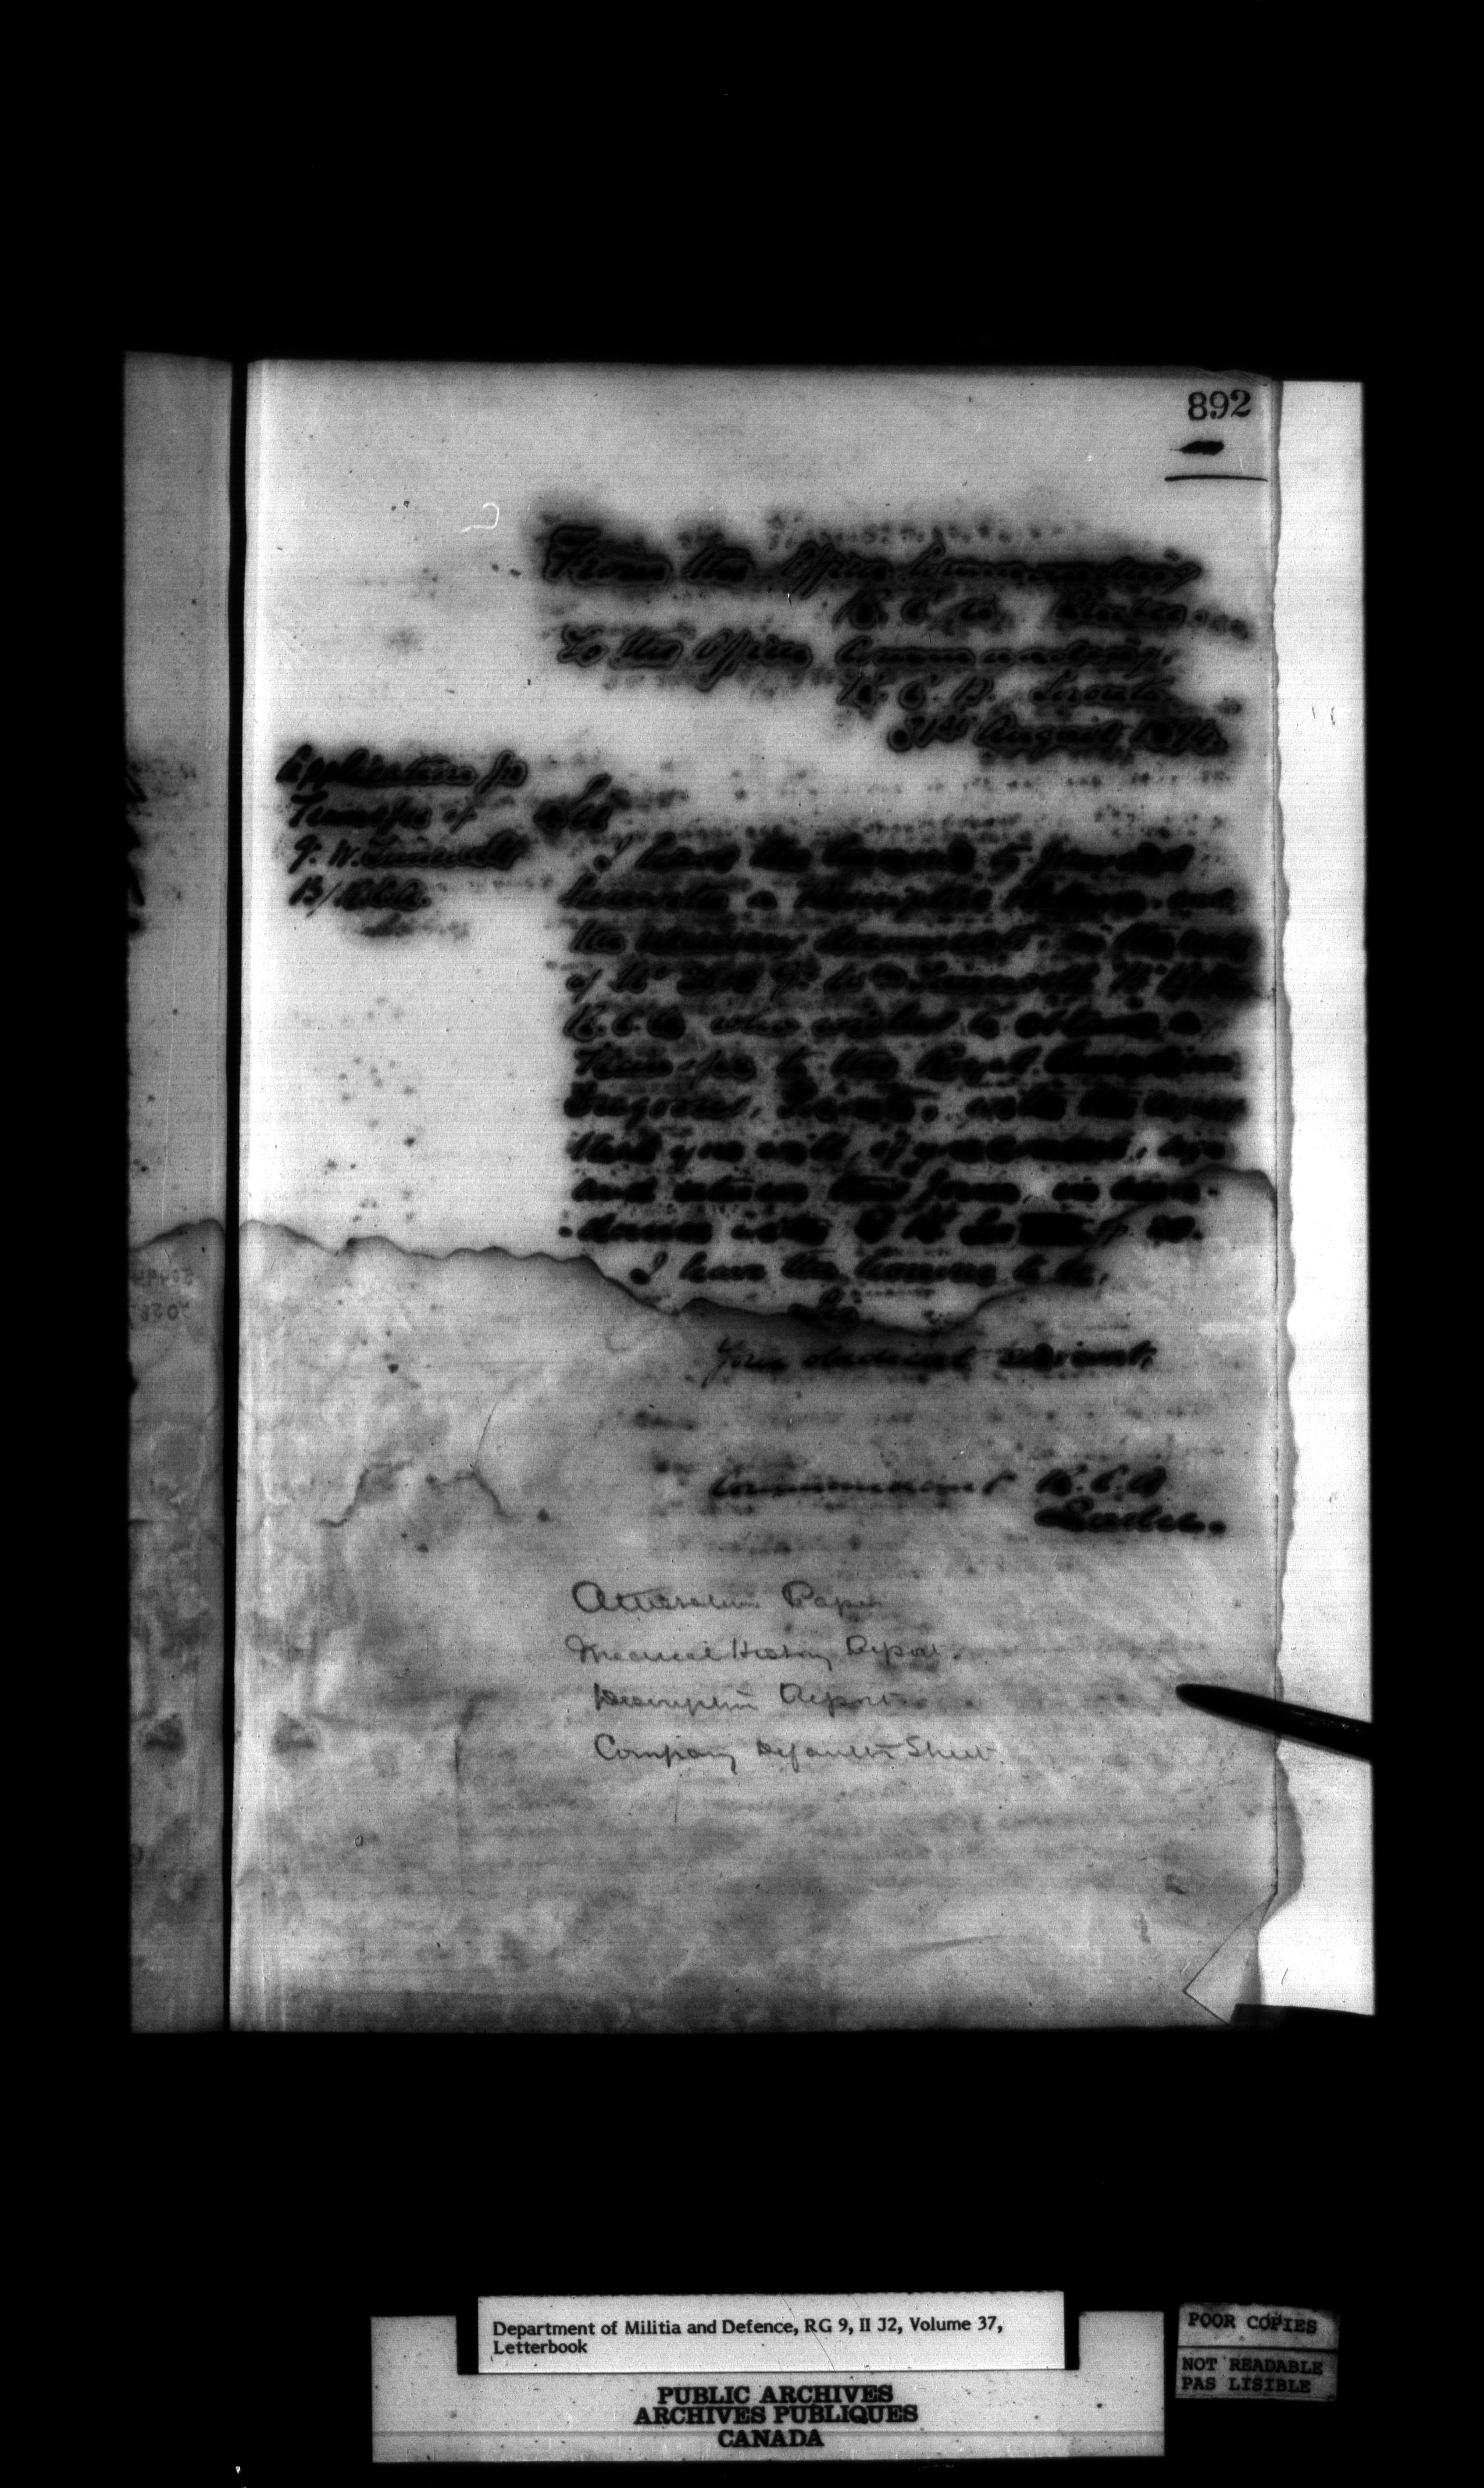 892
From the Officer Commanding
R. C. A. Quebec.
To the Officer Commanding,
R. C. D. Toronto.
31st August, 1894.
Application for
Transfer of
Gr. W.
B/R.C.A.
Sir
I have the honour to forward
herewith a Descriptive Return and
the necessary documents, in the case
of No Gr. Wm By
R.C.A. who wishes to obtain a
Transfer to the Royal Canadian
Dragoons, Toronto, with the
that you will, if, sign
and return this form, in accor-
-dance with
I have the honour to be,
Sir
Your obedient servant,
Commandant R.C.A
Attestation Paper
Medical History Report.
Descriptive Report
Company Defaulter Sheet.
Department of Militia and Defence, RG 9, II J2, Volume 37,
Letterbook
PUBLIC ARCHIVES
ARCHIVES PUBLIQUES
CANADA
POOR COPIES
NOT READABLE
PAS LISIBLE